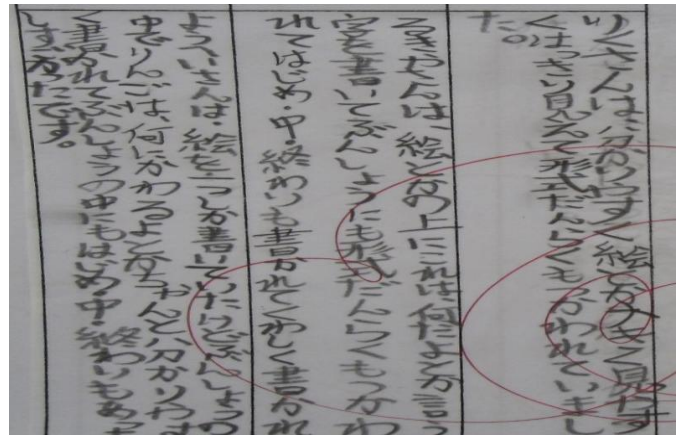 りくさんは、分かりやすく絵とか大きく見やす
くはっきり見えて形式だんらくもつかわれていまし
た。
るきやさんは、絵とかの上にこれは、何だよとか言う
字を書いてぶんしょうにも形式だんらくもつかわ
れてはじめ・中・終わりも書かれてくわしく書かれ
ようへいさんは、絵を二つしか書いていたけどぶんしょうの
中でりんごは、何にかわるよとかちゃんと分かりやす
く書かれてぶんしょうの中にもはじめ・中・終わりもあっ
しまがたです。